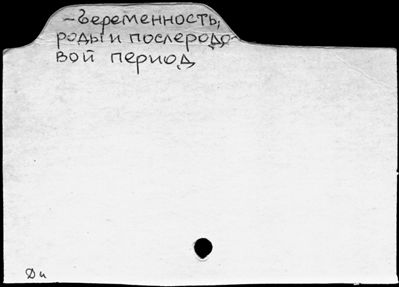 - Беременность,
роды и послеродо-
вой период
Ди